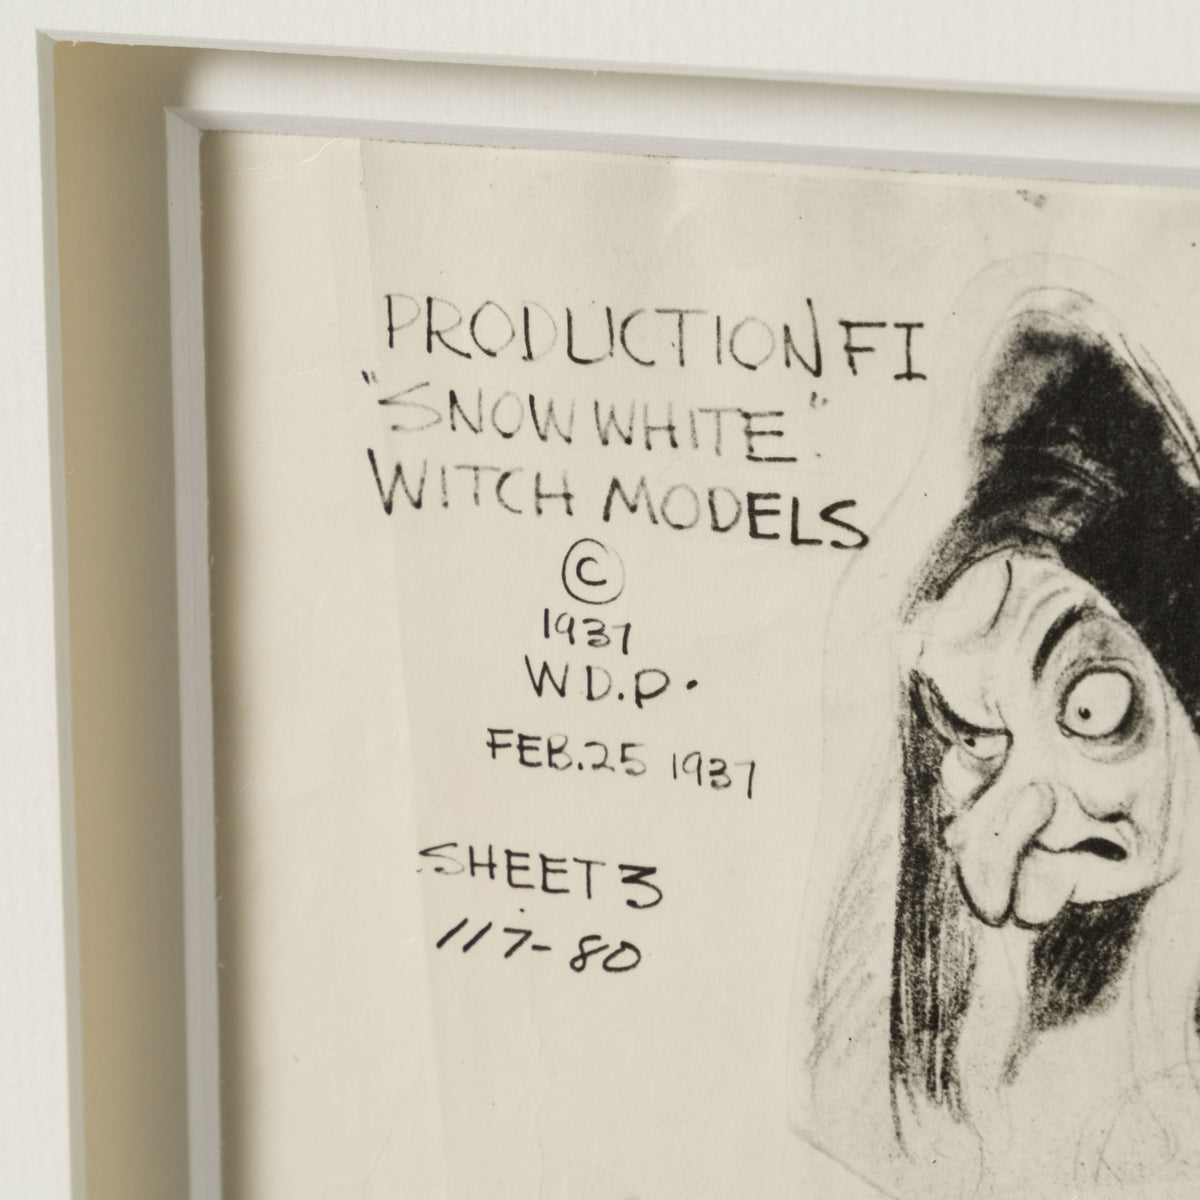 PRODUCTION FI
"SNOW WHITE".
WITCH MODELS
©
1937
W.D.P.
FEB. 25 1937
SHEET 3
117-80